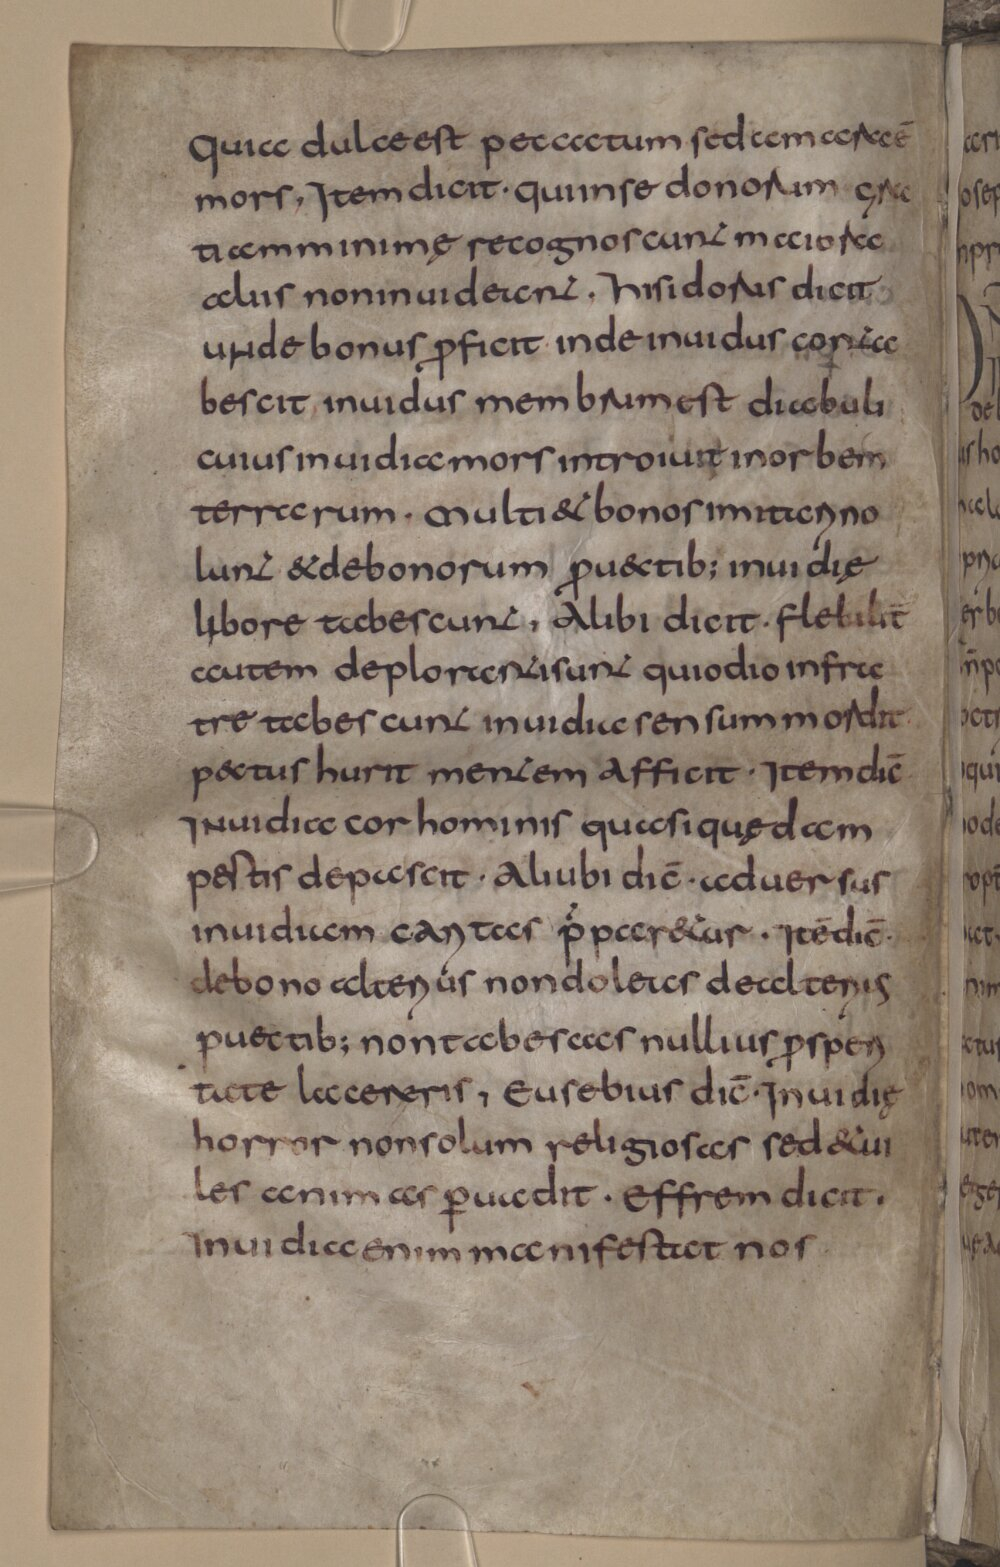 Quia dulce est peccatum sed amara ē
mors, Item dicit· qui in se donorum gra
tiam minimę recognoscunt maiora
alus non inuideant, hisidorus dicit
unde bonus ꝓficit inde inuidus conta
bescit inuidus membrum est diabuli
cuius inuidia mors introiuit in orbem
terrarum· Multi & bonos imitari no
lunt & de bonorum ꝓuectib; inuidię
libore tabescunt, Alibi dicit· flebilit̄
autem deplorantisunt qui odio in fra
tre tabescunt inuidia sensum mordit
pectus hurit mentem afficit· Item dic̄
Inuidia cor hominis quasi quędam
pestis depascit· Aliubi dic̄· aduersus
inuidiam caritas p̄paretur· Itē dic̄·
de bono alterius non doleas de alteris
puectib; non tabescas nullius ꝓsperi
tate lacereris, Eusebius dic̄· Inuidię
horror non solum religiosas sed & ui
les animas ꝑuadit· Effrem dicit·
Inuidia enim manifestat nos